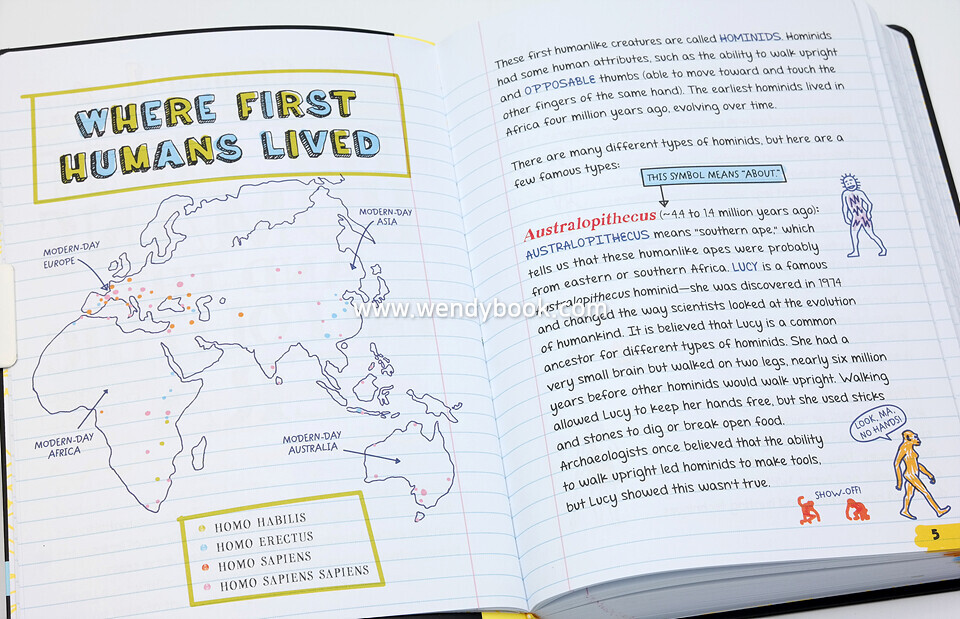 WHERE FIRST
HUMANS LIVED
MODERN-DAY
EUROPE
MODERN-DAY
ASIA
MODERN-DAY
AFRICA
MODERN-DAY
AUSTRALIA
HOMO HABILIS
HOMO ERECTUS
HOMO SAPIENS
HOMO SAPIENS SAPIENS
These first humanlike creatures are called HOMINIDS. Hominids
had some human attributes, such as the ability to walk upright
and OPPOSABLE thumbs (able to move toward and touch the
other fingers of the same hand). The earliest hominids lived in
Africa four million years ago, evolving over time.
There are many different types of hominids, but here are a
few famous types:
THIS SYMBOL MEANS "ABOUT."
Australopithecus (~4.4 to 1.4 million years ago):
AUSTRALOPITHECUS means "southern ape," which
tells us that these humanlike apes were probably
from eastern or southern Africa. LUCY is a famous
Australopithecus hominid—she was discovered in 1974
and changed the way scientists looked at the evolution
of humankind. It is believed that Lucy is a common
ancestor for different types of hominids. She had a
very small brain but walked on two legs, nearly six million
years before other hominids would walk upright. Walking
allowed Lucy to keep her hands free, but she used sticks
and stones to dig or break open food.
Archaeologists once believed that the ability
to walk upright led hominids to make tools,
but Lucy showed this wasn't true.
LOOK, MA,
NO HANDS!
SHOW-OFF!
5
www.wendybook.com